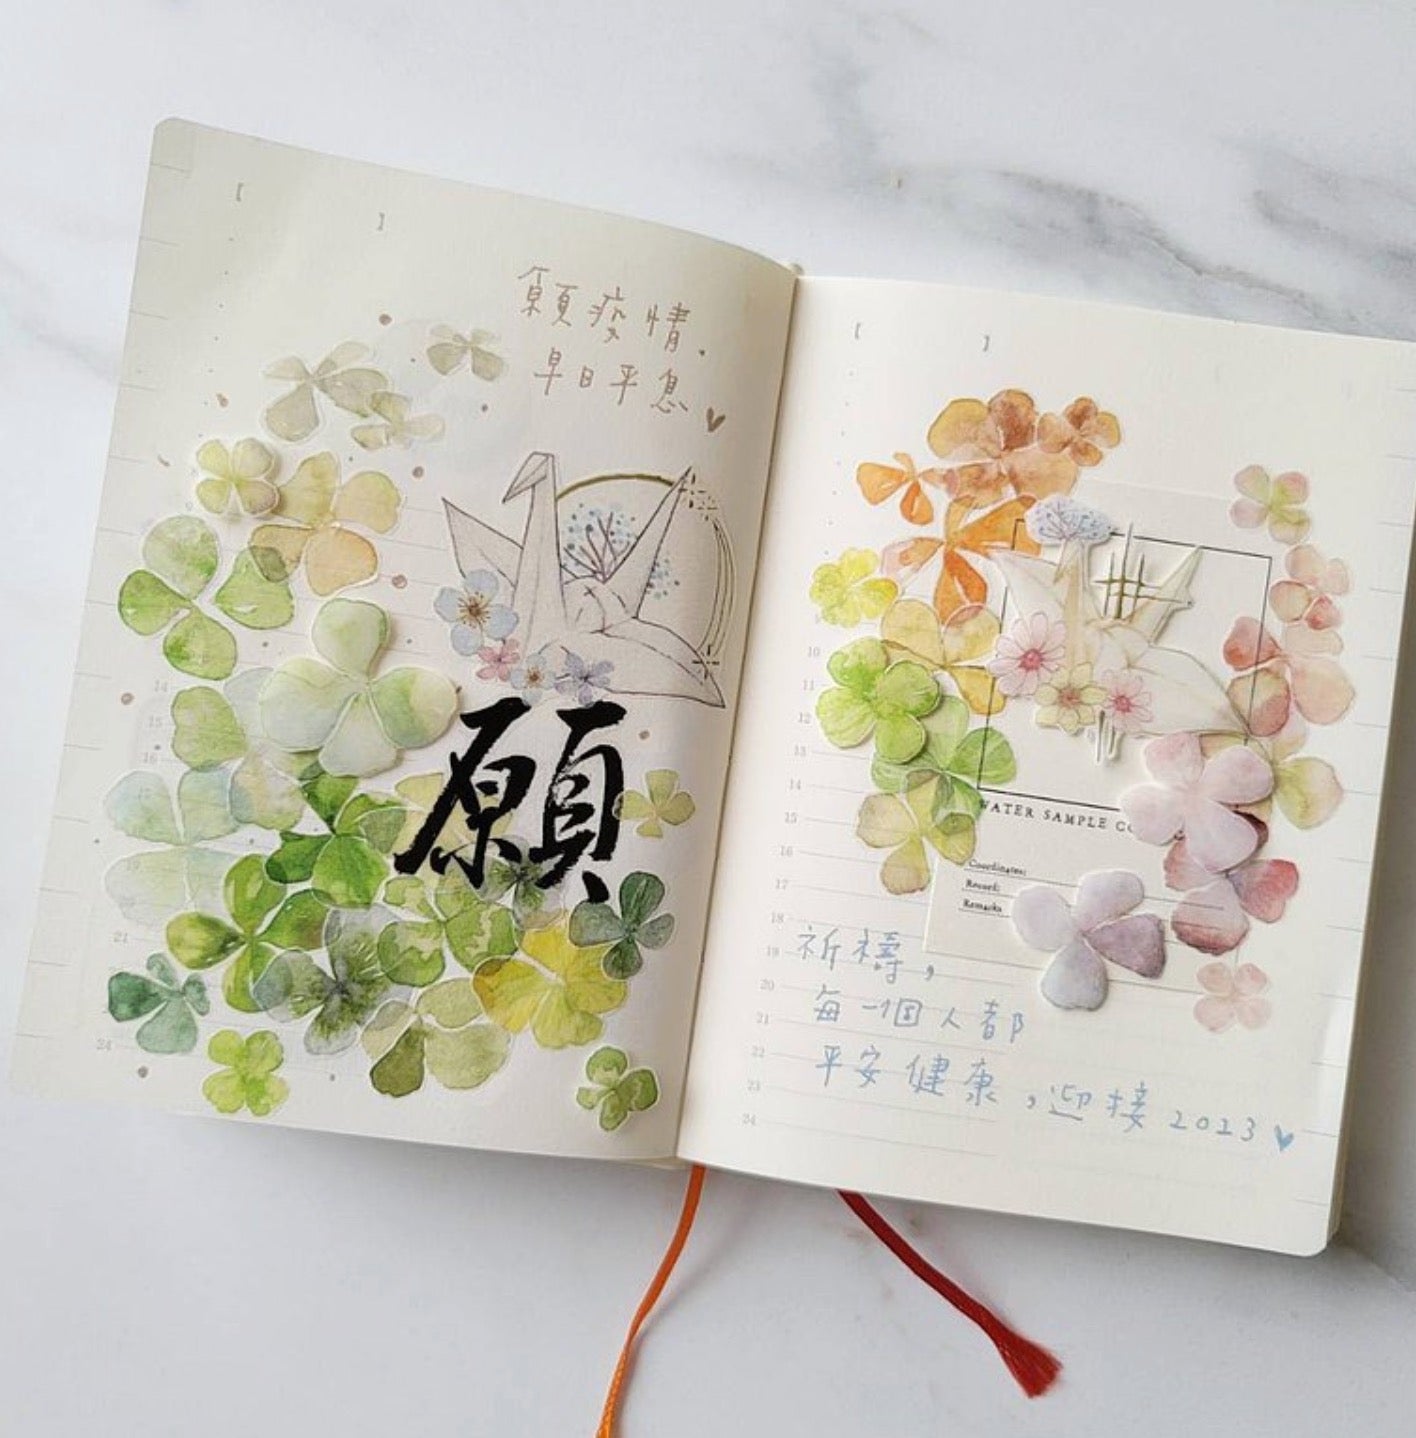 [ ]
願疫情
早日平息
願
14
15
16
21
24
[ ]
9
10
11
12
13
14
15
16
17
18
19
20
21
22
23
24
WATER SAMPLE
Coordinates:
Record:
Remarks
祈禱，
每一個人都
平安健康，迎接2023